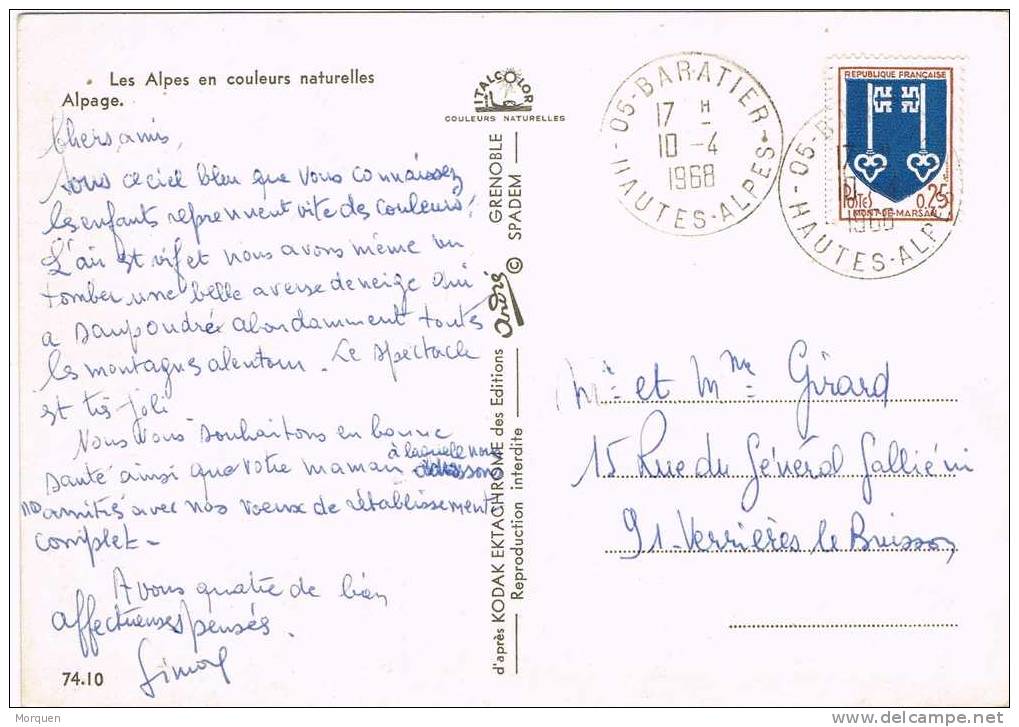 Les Alpes en couleurs naturelles
Alpage.
Chers amis,
Sous ce ciel bleu que vous connaissez
les enfants reprennent vite des couleurs,
L'air est vif et nous avons même vu
tomber une belle averse de neige qui
a saupoudrée abondamment toutes
les montagnes alentour. Le spectacle
est très joli
Nous vous souhaitons en bonne
santé ainsi que votre maman à laquelle nous
amitiés avec nos voeux de rétablissement
complet -
A vous quatre de bien
affectueuses pensés.
74.10
ITALCOLOR
COULEURS NATURELLES
d'après KODAK EKTACHROME des Editions André © SPADEM - GRENOBLE
Reproduction interdite
05-BARATIER
17 H
10 -4
1968
HAUTES-ALPES
REPUBLIQUE FRANÇAISE
POSTES 0,25
MONT-DE-MARSAN
05-B
17
1968
HAUTES-ALP
Mr et Mme Girard
15 Rue du Général Galliéni
91-Verrières le Buisson
Morquen
delcampe.net